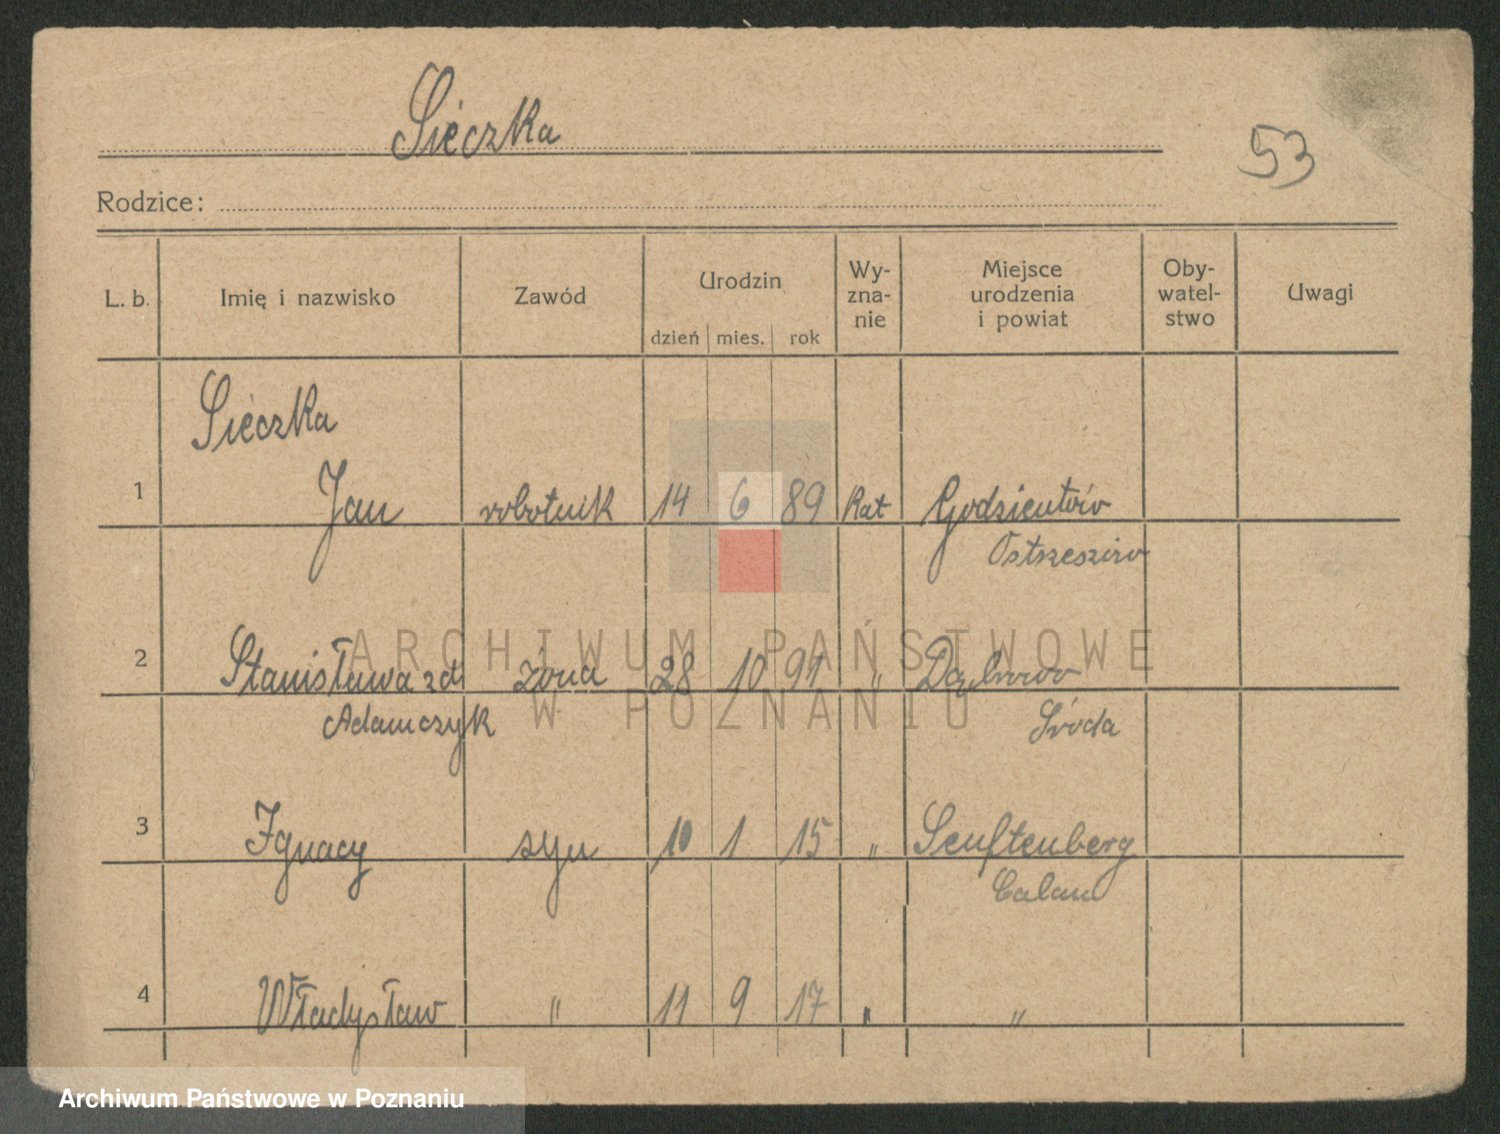 Sieczka
53
Rodzice:
L. b. Imię i nazwisko Zawód Urodzin dzień mies. rok Wy-zna-nie Miejsce urodzenia i powiat Oby-watel-stwo Uwagi
Sieczka
1 Jan robotnik 14 6 89 kat Godzientów
Ostrzeszów
2 Stanisława zd żona 28 10 91 " Dąbrowo
Adamczyk Środa
3 Ignacy syn 10 1 15 " Senftenberg
Calau
4 Władysław " 11 9 17 " "
ARCHIWUM PAŃSTWOWE
W POZNANIU
Archiwum Państwowe w Poznaniu